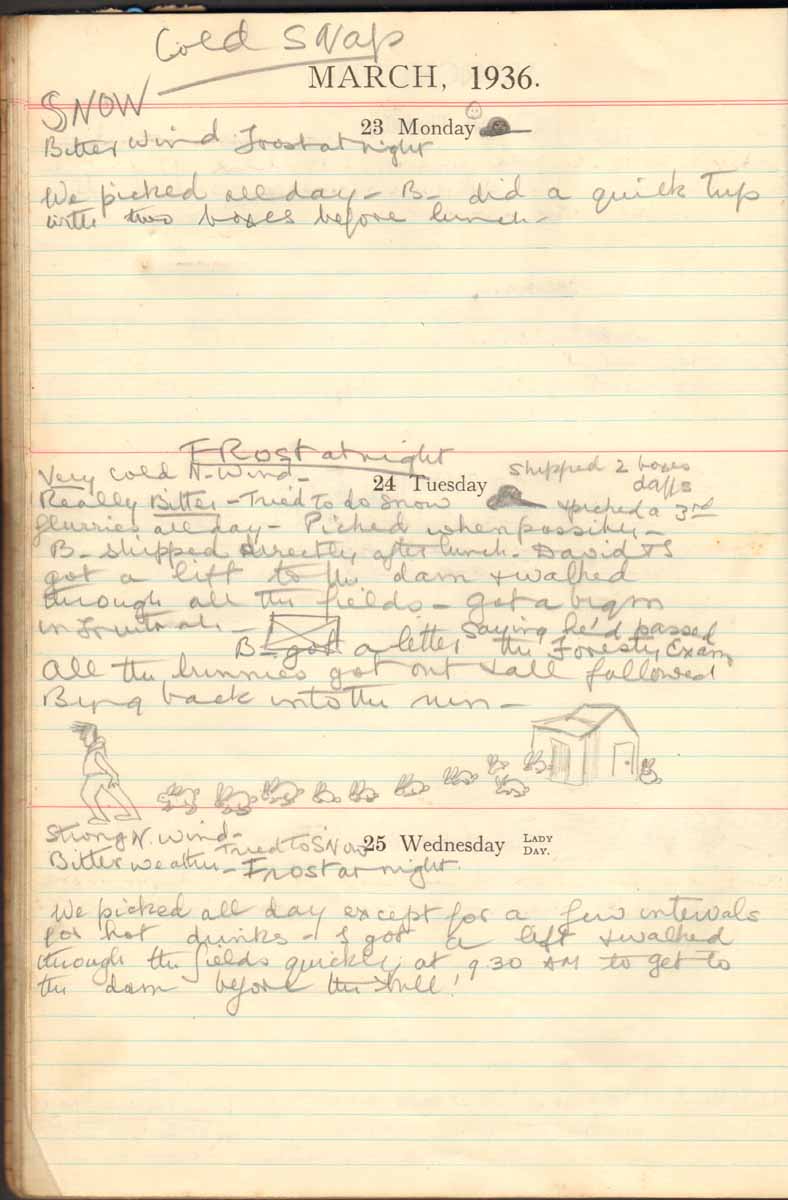 Cold Snap
MARCH, 1936.
SNOW
23 Monday
Bitter Wind Frost at night
We picked all day – B – did a quick Trip
with two boxes before lunch –
FRost at night
Very cold N. Wind –
24 Tuesday
shipped 2 boxes
daffs
Really Bitter – Tried To do Snow
& picked a 3rd
flurries all day – Picked when possible –
B – shipped directly after lunch. David & I
got a lift to the dam & walked
through all the fields – got a
in
saying he'd passed
B – got a letter the Forestry Exam
all the bunnies got out & all followed
back into the run –
Strong N. Wind –
Tried to Snow
25 Wednesday LADY DAY.
Bitter weather – Frost at night.
We picked all day except for a few intervals
for hot drinks – I got a lift & walked
through the fields quickly at 9.30 AM to get to
the dam before the